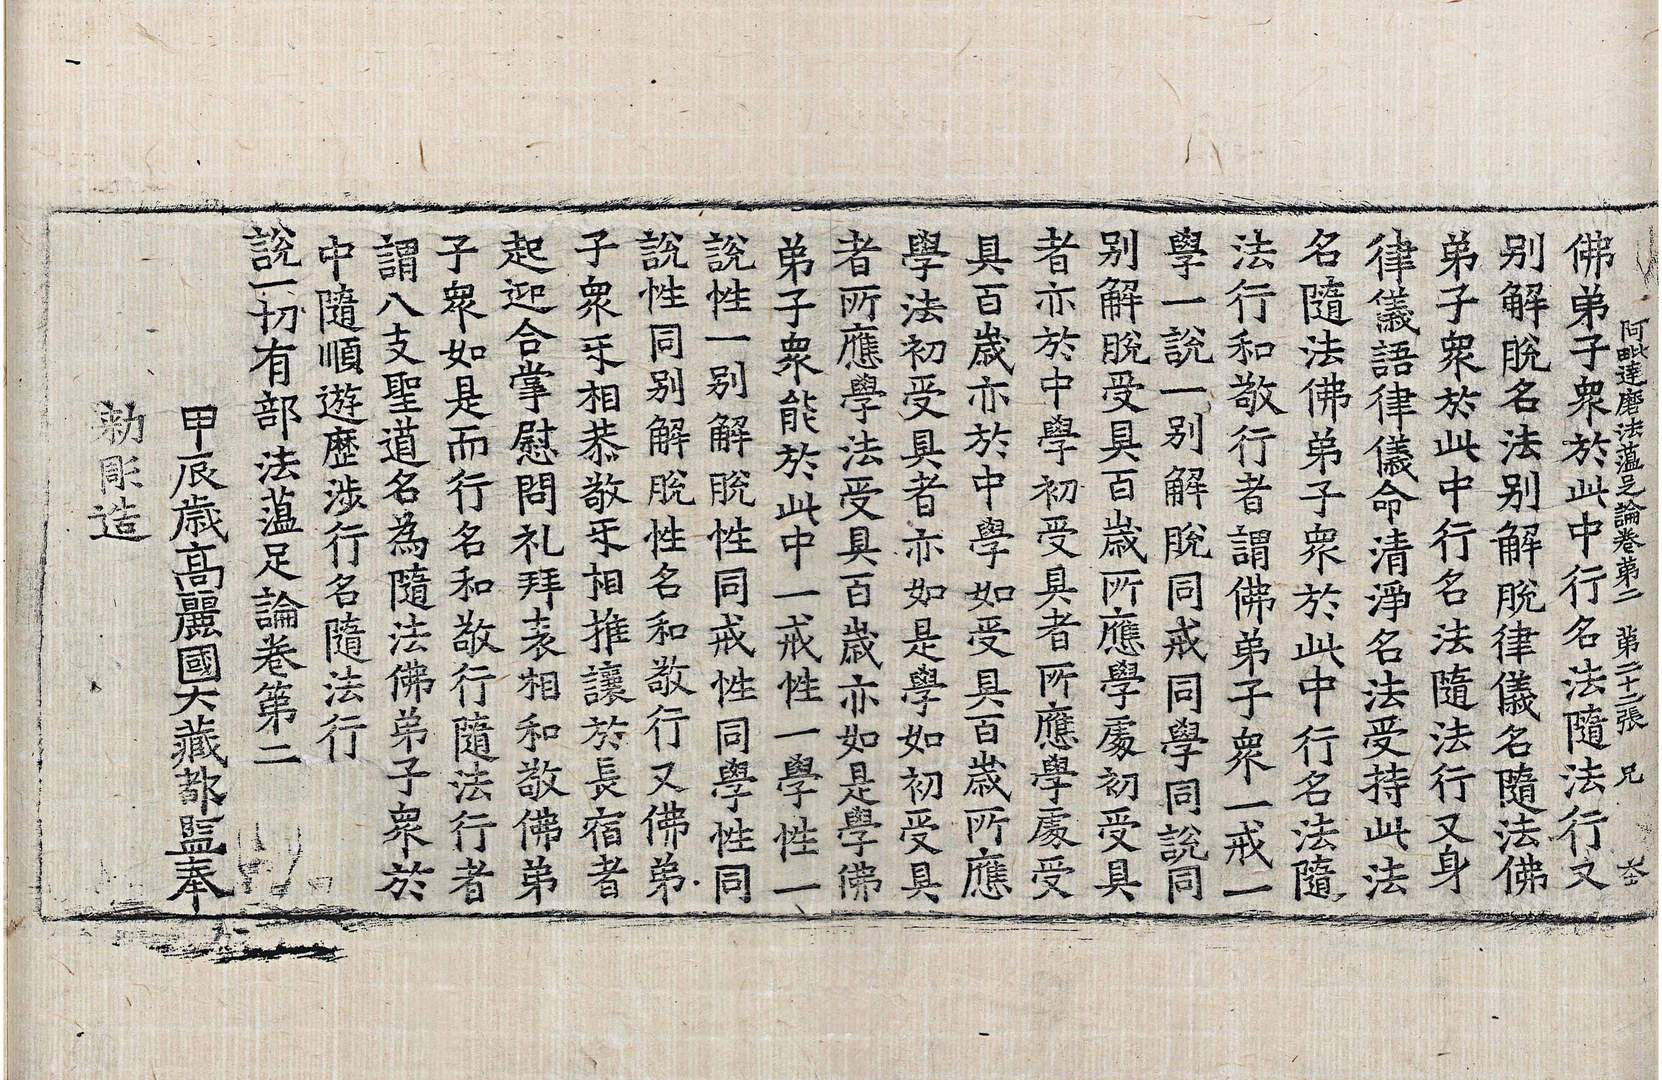 阿毗達磨法蕴足論卷第二 第二十二張 兄
佛弟子衆於此中行名法隨法行又
别解脫名法别解脫律儀名隨法佛
弟子衆於此中行名法隨法行又身
律儀語律儀命清淨名法受持此法
名隨法佛弟子衆於此中行名法隨
法行和敬行者謂佛弟子衆一戒一
學一說一别解脫同戒同學同說同
别解脫受具百歲所應學處初受具
者亦於中學初受具者所應學處受
具百歲亦於中學如受具百歲所應
學法初受具者亦如是學如初受具
者所應學法受具百歲亦如是學佛
弟子衆能於此中一戒性一學性一
說性一别解脫性同戒性同學性同
說性同别解脫性名和敬行又佛弟
子衆㸦相恭敬㸦相推讓於長宿者
起迎合掌慰問礼拜表相和敬佛弟
子衆如是而行名和敬行隨法行者
謂八支聖道名為隨法佛弟子衆於
中隨順遊歷涉行名隨法行
說一切有部法蕴足論卷第二
甲辰歲高麗國大藏都監奉
勅彫造